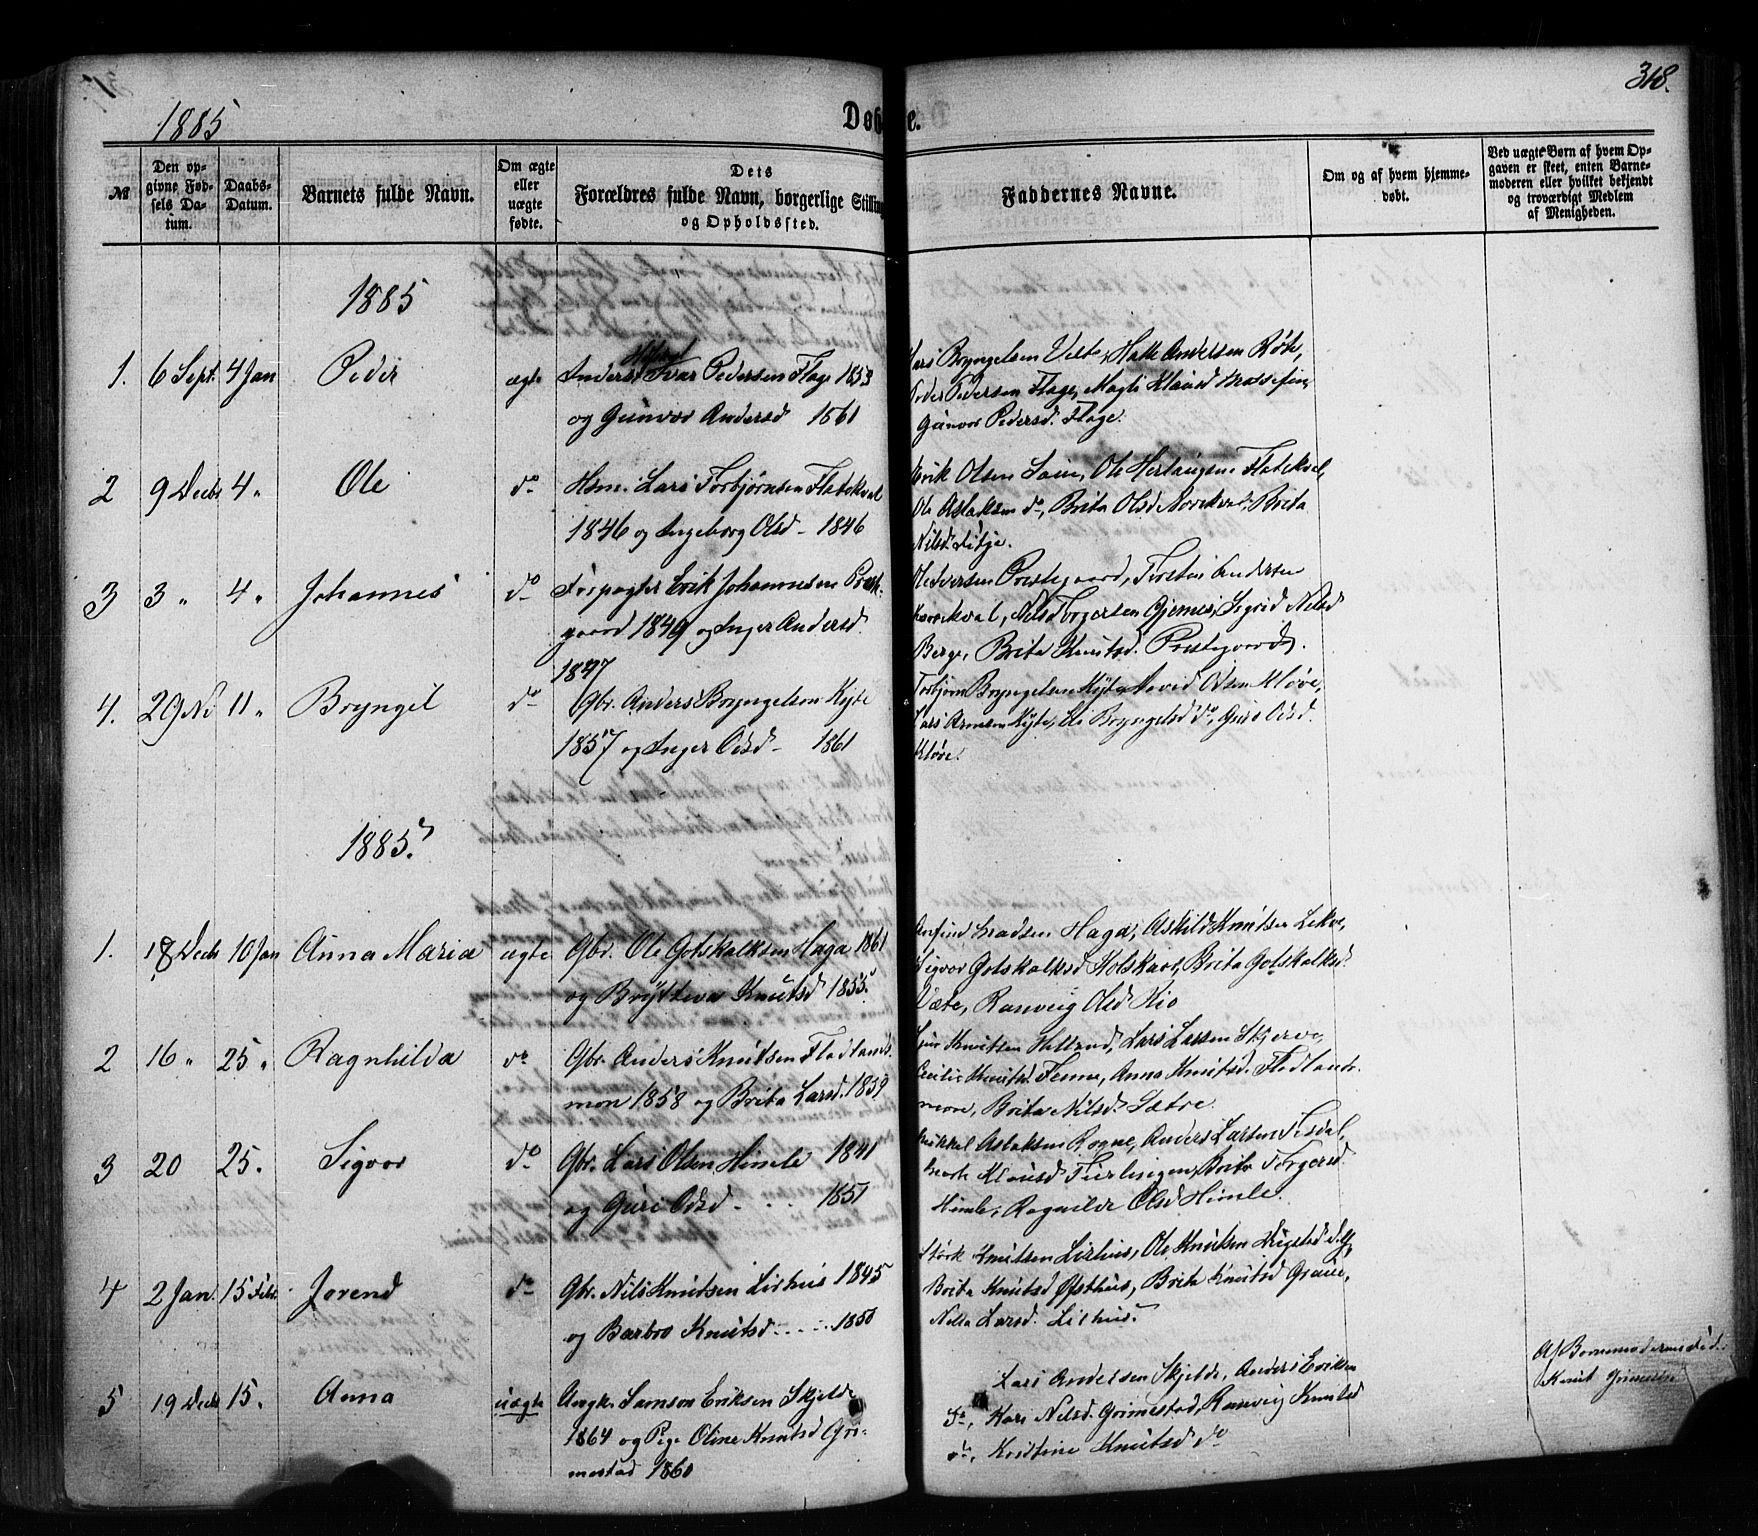 348.
1885
Døbte.
№
Den opgivne Fødsels Datum.
Daabs-Datum.
Barnets fulde Navn.
Om ægte eller uægte fødte.
Dets Forældres fulde Navn, borgerlige Stilling og Opholdssted.
Faddernes Navne.
Om og af hvem hjemmedøbt.
Ved uægte Børn af hvem Opgaven er skeet, enten Barnemoderen eller hvilket bekjendt og troværdigt Medlem af Menigheden.
1885
1. 6 Sept. 4 Jan Peder ægte Anders Ivar Pedersen Flage 1853
og Gunvor Andersd 1861
Lars Bryngelsen Velte, Halle Andersen Røte,
Peder Pedersen Flage, Magli Klausd
Gunvor Pedersd. Flage.
2 9 Decbr 4 " Ole do Hsm. Lars Torbjørnsen Flatekval
1846 og Ingeborg Olsd - 1846
Erik Olsen Saue, Ole Herlaugsen Flatekval,
Ole Aslaksen do, Brita Olsd Norekval, Brita
Nilsd
3 3 " 4 " Johannes do Forpagter Erik Johannesen Prest-
gaard 1849 og Inger Andersd.
1847
Ole Iversen Prestegaard, Torstein Andersen
Norekval, Nils Torgersen Gjernes, Sigrid Nilsd
Berge, Brita Knutsd. Prestegaard.
4. 29 No 11 " Bryngel do Gbr. Anders Bryngelsen Kyte
1857 og Inger Odsd - 1861
Torbjørn Bryngelsen Kyte, Odsen Kløve,
Lars Arnesen Kyte, Eli Bryngelsd do, Guro Odsd.
Kløve.
1885.
1. 18 Decb 10 Jan Anna Maria ægte Gbr. Ole Gotskalksen Haga 1861
og Bryteva Knutsd 1855.
Anfind Haga, Askild Knutsen Lekve,
Sigvor Gotskalksd Holskart, Brita Gotskalksd.
Væte, Ranveig Olsd Kio
2 16 " 25 " Ragnhilda do Gbr. Anders Knutsen Fladlands-
mon 1858 og Brita Larsd. 1859
Knutsen Helland, Lars Larsen Skjerve,
Cecilie Knutsd. Fenne, Anna Knutsd. Fladlands-
Brita Nilsd. Sætre.
3 20 25. Sigvor do Gbr. Lars Olsen Himle 1841
og Guri Odsd . . . . 1851
Mikkal Aslaksen Rogne, Anders Larsen
Klausd Brita Torgersd.
Himle, Ragnilde Olsd Himle.
4 2 Jan. 15 Febr. Jorend do Gbr. Nils Knutsen Lirhus 1845
og Barbro Knutsd . . . . . 1850
Størk Knutsen Lirhus, Ole Knutsen
Brita Knutsd Østhus, Brita Knutsd Graue,
Nilsa Larsd. Lirhus.
5 19 Decb 15. Anna uægte Ungk. Samson Eriksen Skjelde
1864 og Pige Oline Knutsd Gri-
mestad 1860
Lars Andersen Skjelde, Anders Eriksen
do, Kari Nilsd. Grimestad, Ranveig Knutsd
do, Kristine Knutsd do
Af Barnemoderens
Knut